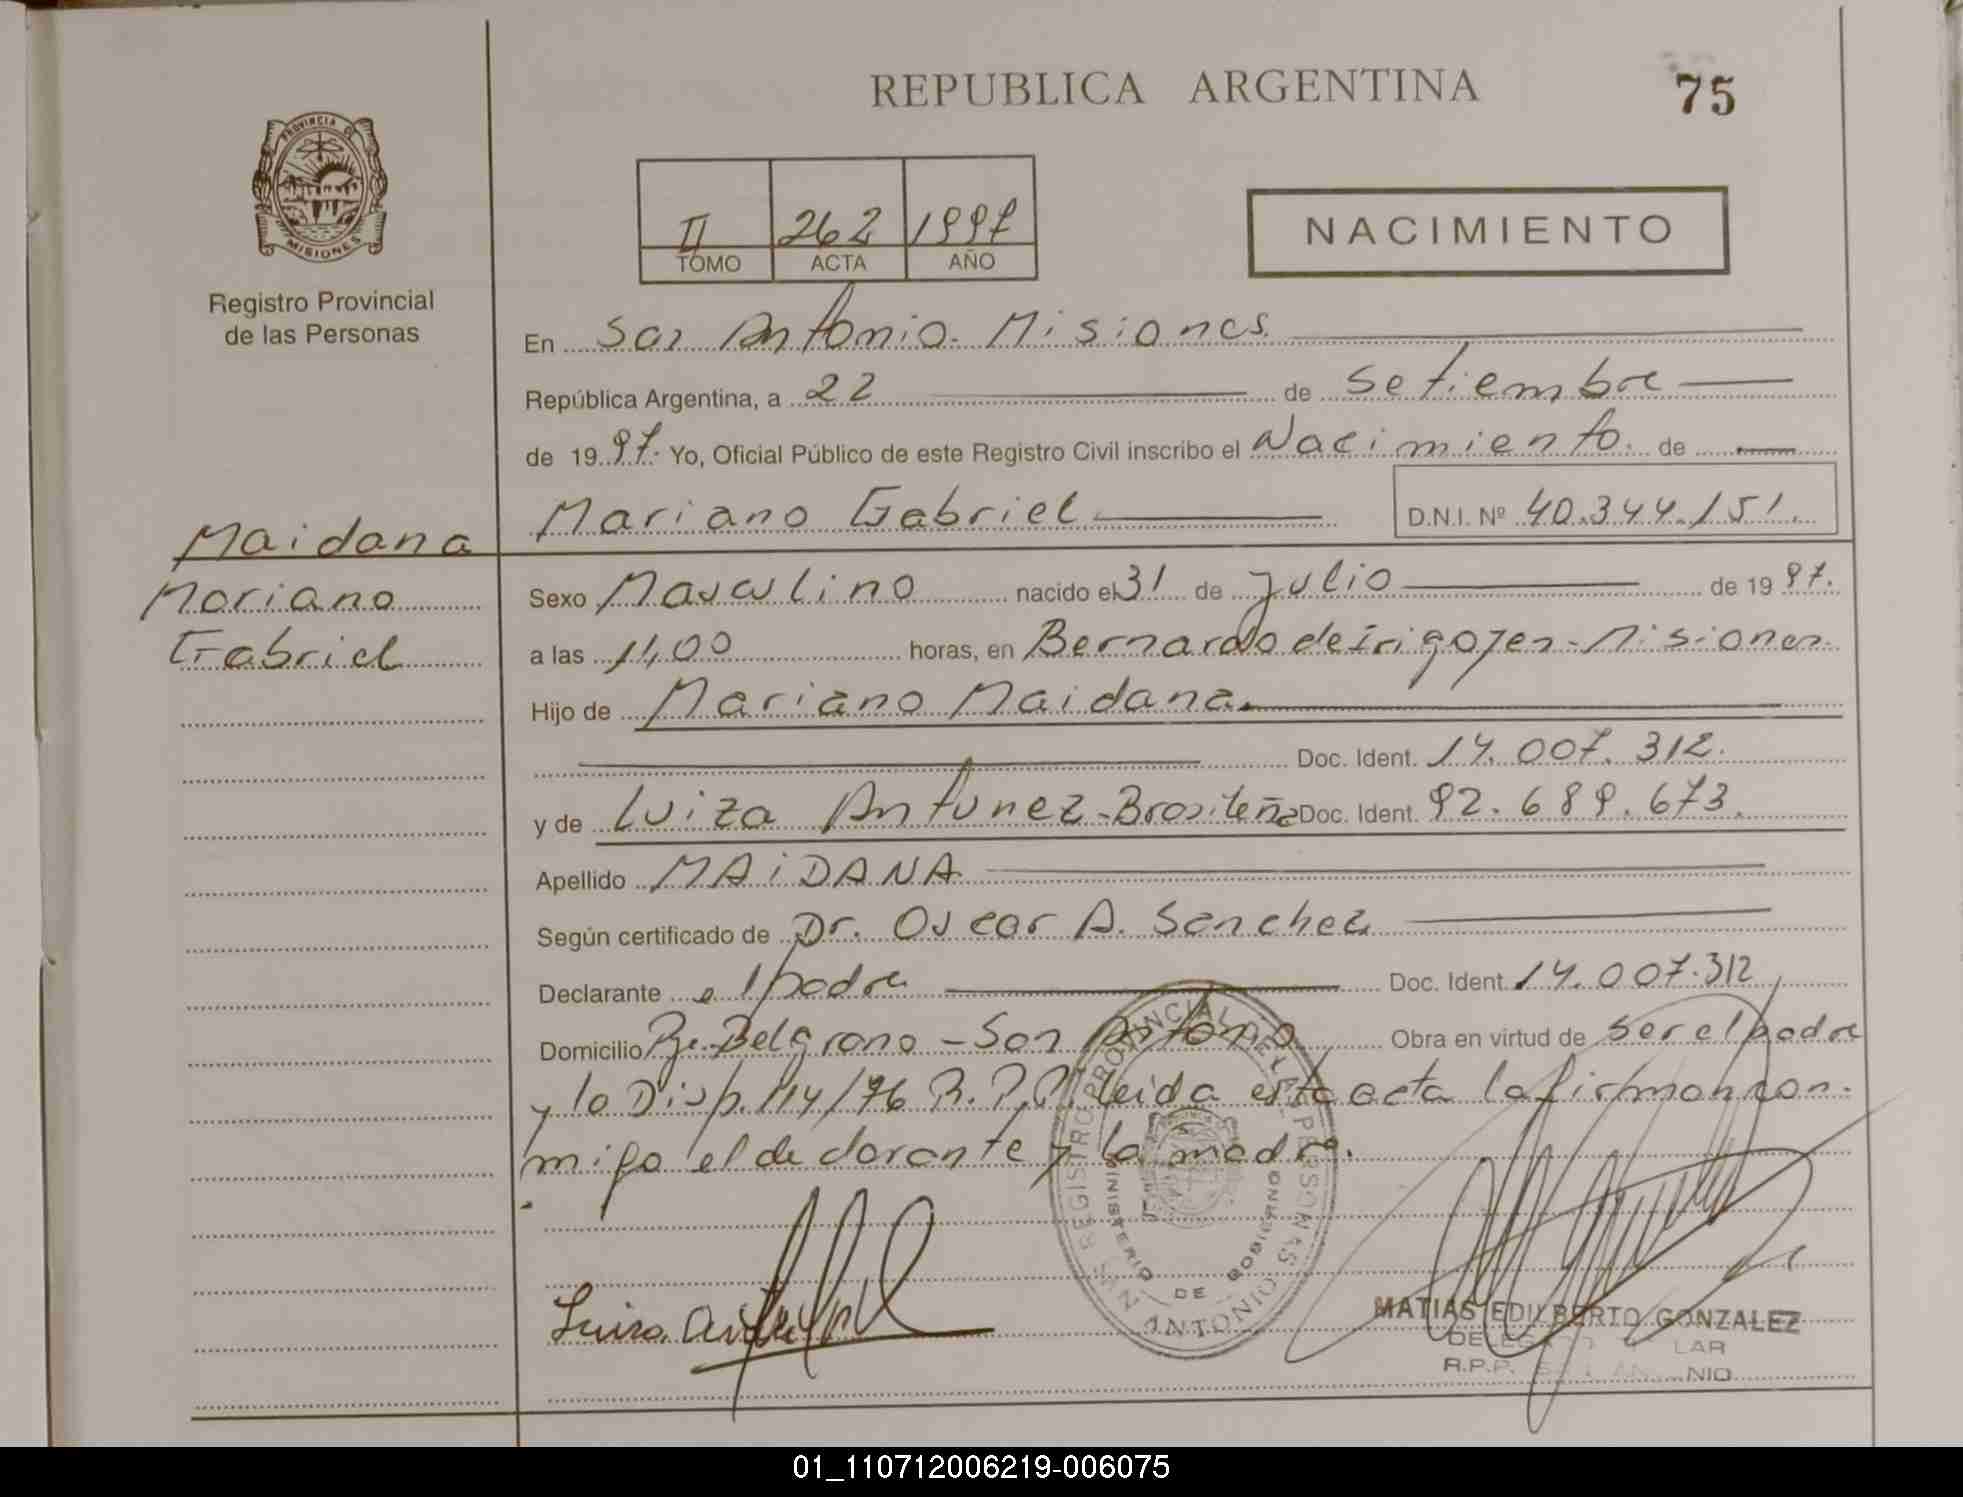 REPUBLICA ARGENTINA
75
PROVINCIA DE
MISIONES
Registro Provincial
de las Personas
II 262 1997
TOMO ACTA AÑO
NACIMIENTO
En San Antonio - Misiones
República Argentina, a 22 de Setiembre
de 1997. Yo, Oficial Público de este Registro Civil inscribo el Nacimiento. de
Mariano Gabriel D.N.I. Nº 40.344.151.
Maidana
Mariano
Gabriel
Sexo Masculino nacido el 31 de Julio de 1997.
a las 11,00 horas, en Bernardo de Irigoyen - Misiones.
Hijo de Mariano Maidana
Doc. Ident. 14.007.312.
y de Luiza Antunez - Brasileña Doc. Ident. 92.689.673.
Apellido MAiDANA
Según certificado de Dr. Oscar A. Sanchez
Declarante el padre Doc. Ident. 14.007.312
Domicilio Pje. Belgrano - San Antonio Obra en virtud de ser el padre
y la Disp. 114/76 R.P.P. leida esta acta la firman con-
migo el declarante y la madre.
REGISTRO PROVINCIAL DE LAS PERSONAS
MINISTERIO DE GOBIERNO
SAN ANTONIO
Luiza
MATIAS EDILBERTO GONZALEZ
R.P.P.
01_110712006219-006075